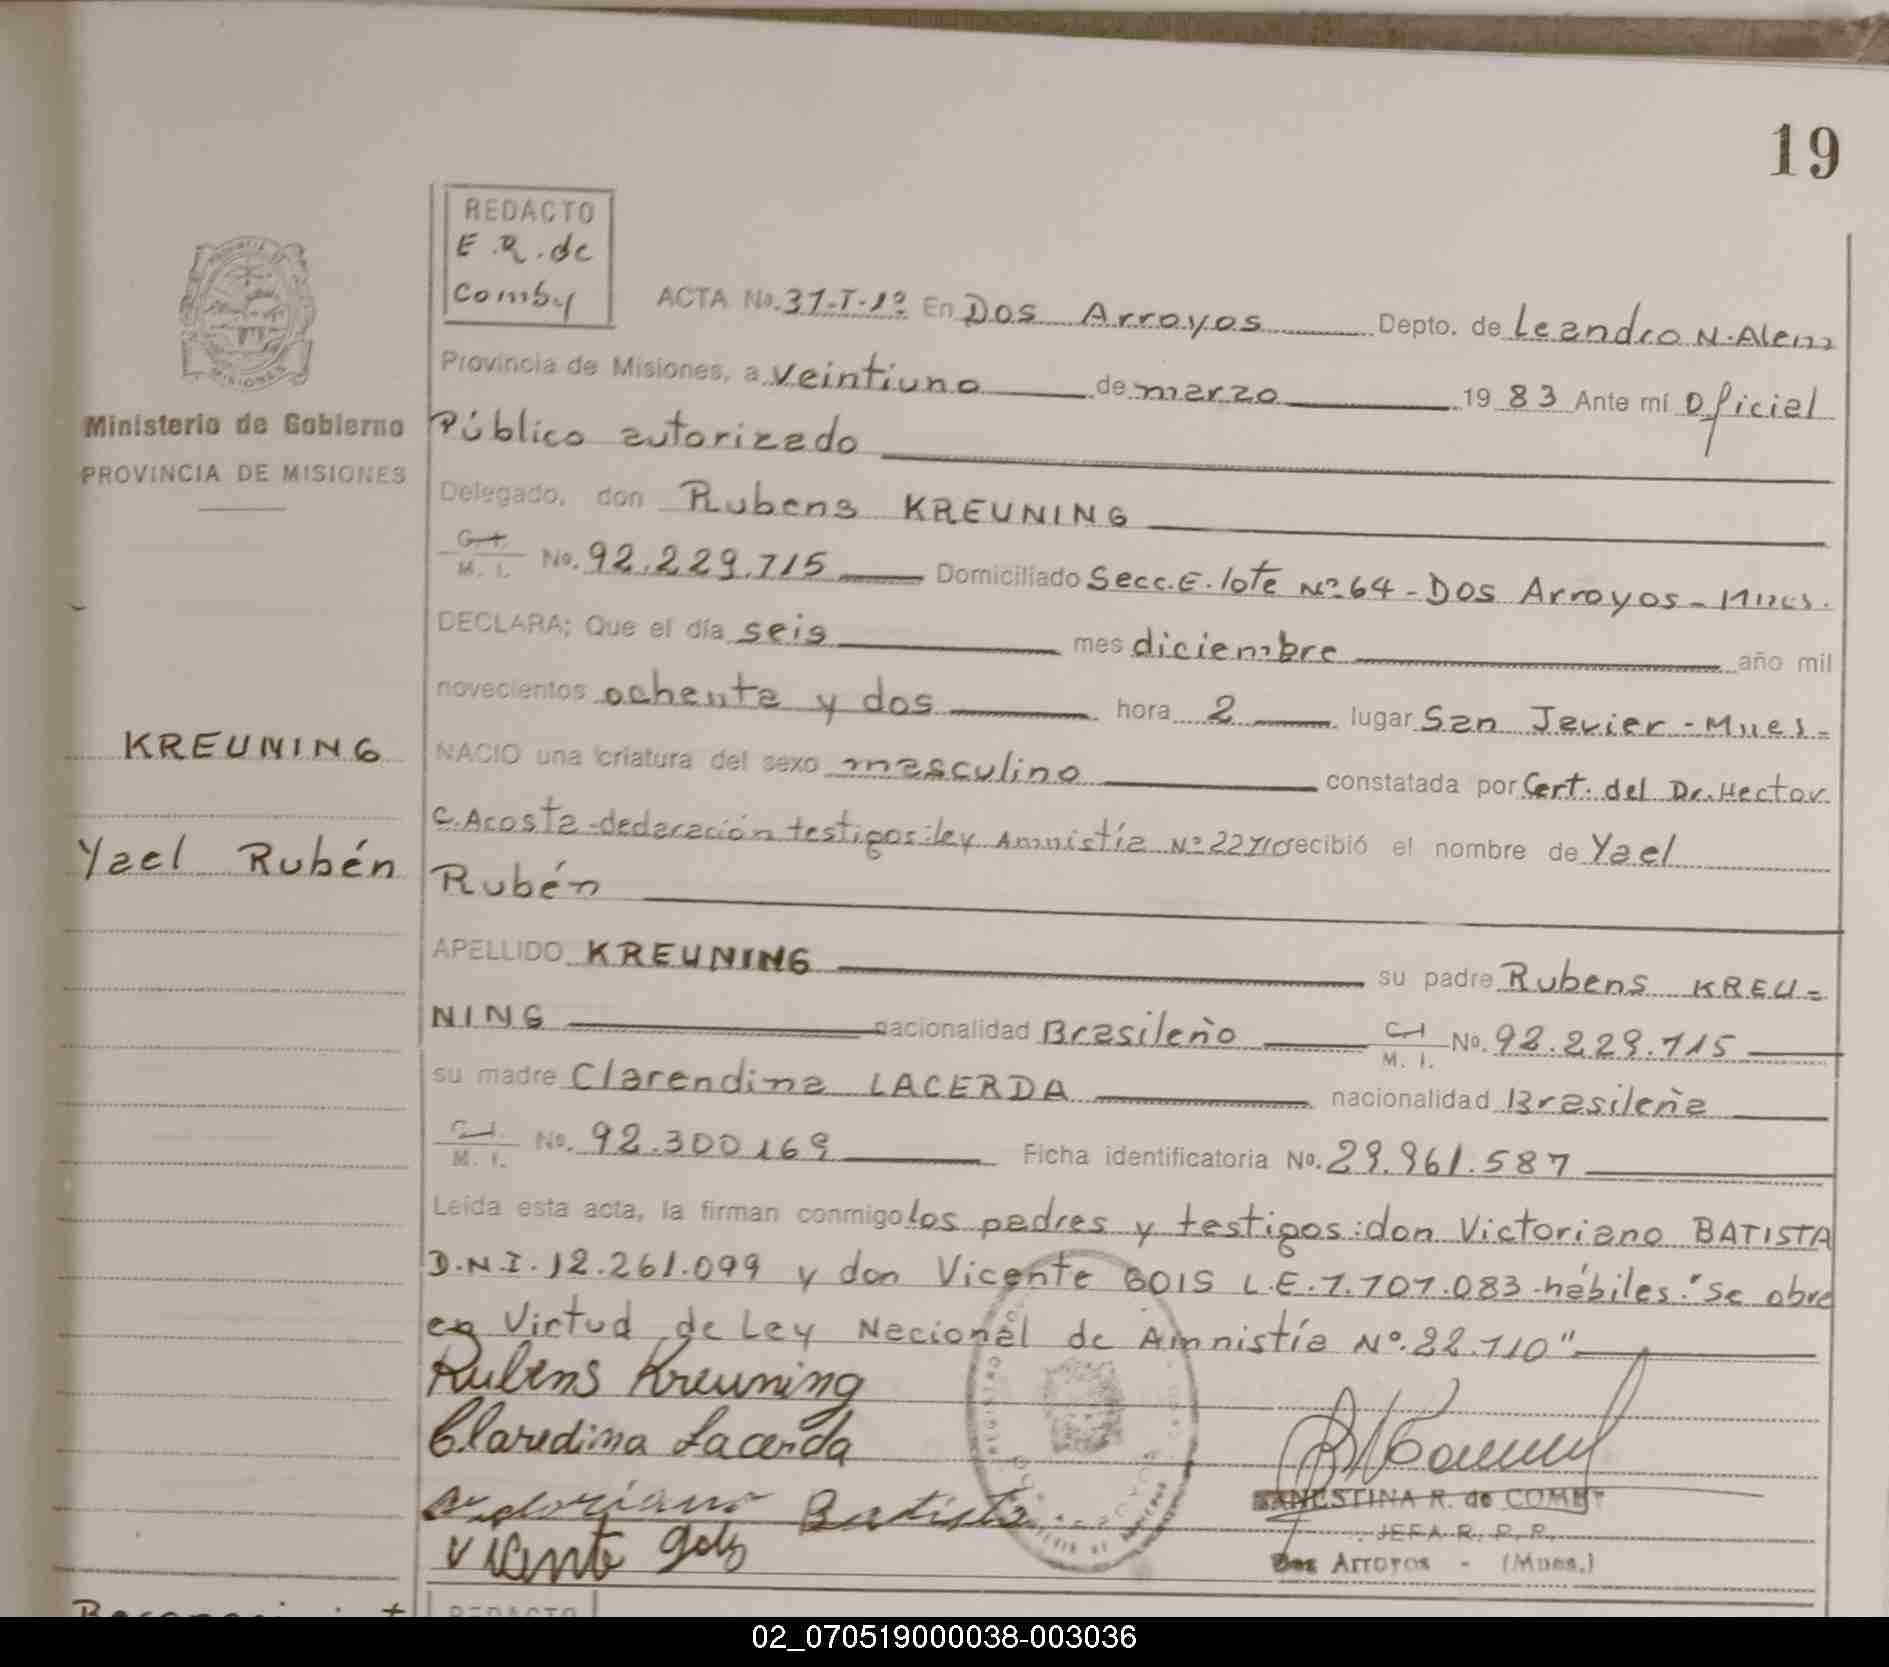 19
REDACTO
E.R. de
Comby
ACTA No. 31-T-1º En Dos Arroyos Depto. de Leandro N. Alem
Provincia de Misiones, a veintiuno de marzo 19 83 Ante mí Oficial
Ministerio de Gobierno
Público autorizado
PROVINCIA DE MISIONES
MISIONES
Delegado, don Rubens KREUNING
C.I. M. I. No. 92.229.715 Domiciliado Secc. E. lote Nº 64 - Dos Arroyos - Mnes.
DECLARA; Que el día seis mes diciembre año mil
novecientos ochenta y dos hora 2 lugar San Javier - Mnes -
KREUNING
NACIO una criatura del sexo masculino constatada por Cert. del Dr. Hector
C. Acosta - declaración testigos: ley Amnistía Nº 22710 recibió el nombre de Yael
Yael Rubén
Rubén
APELLIDO KREUNING su padre Rubens KREU=
NING nacionalidad Brasileño C.I. M. I. No. 92.229.715
su madre Clarendina LACERDA nacionalidad Brasileña
C.I. M. I. No. 92.300.169 Ficha identificatoria No. 29.961.587
Leída esta acta, la firman conmigo los padres y testigos: don Victoriano BATISTA
D.N.I. 12.261.099 y don Vicente GOIS L.E. 7.707.083 - hábiles. "Se abre
en Virtud de Ley Nacional de Amnistía Nº. 22.710"
Rubens Kreuning
Claredina Lacerda
Batista
Vicente Gois
REGISTRO
R. de COMBY
JEFA R. P. P.
Dos Arroyos - (Mnes.)
REDACTO
02_070519000038-003036